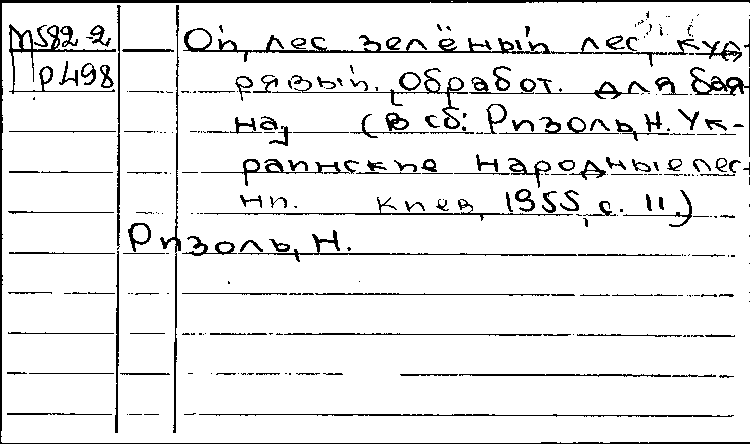 М582-2
Р498
Ой, лес зелёный лес, куд-
рявый. [Обработ. для бая-
на] (В сб: Ризоль, Н. Ук-
раинские народные пес-
ни. Киев, 1955, с. 11.)
Ризоль, Н.